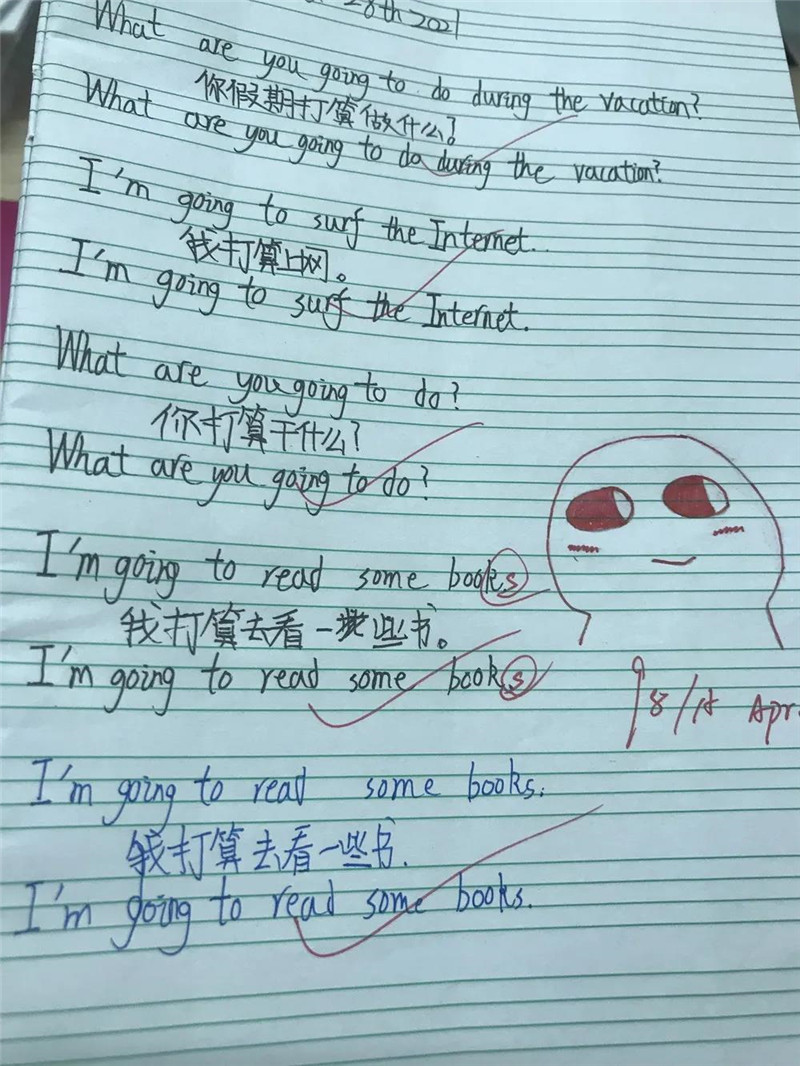 28th 2021
What are you going to do during the vacation?
你假期打算做什么?
What are you going to do during the vacation?
I'm going to surf the Internet.
我打算上网。
I'm going to surf the Internet.
What are you going to do?
你打算干什么?
What are you going to do?
I'm going to read some books
我打算去看一些书。
I'm going to read some books
I'm going to read some books.
我打算去看一些书.
I'm going to read some books.
Apr.